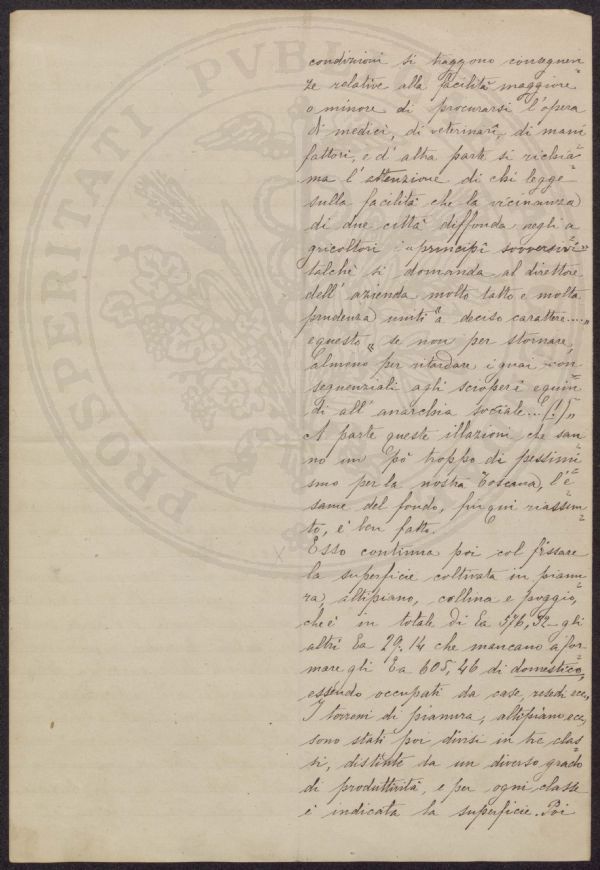 condizioni si traggono conseguen=
ze relative alla facilità maggiore
o minore di procurarsi l'opera
di medici, di veterinarî, di mani
fattori, e d'altra parte si richia=
ma l'attenzione di chi legge
sulla facilità che la vicinanza
di due città diffonda negli a
gricoltori i "principî sovversivi"
talchè si domanda al direttore
dell'azienda molto tatto e molta
prudenza uniti "a deciso carattere....."
e questo "se non per stornare,
almeno per ritardare i guai con=
sequenziali agli scioperi e quin=
di all'anarchia sociale...(!)"
A parte queste illazioni che san=
no un pò troppo di pessimi=
smo per la nostra Toscana, l'e=
same del fondo, fin qui riassun=
to, è ben fatto.
Esso continua poi col fissare
la superficie coltivata in pianu=
ra, altipiano, collina e poggio,
che è in totale di Ea 576,32 - gli
altri Ea 29.14 che mancano a for=
mare gli Ea 605,46 di domestico,
essendo occupati da case, resedi ecc,
I terreni di pianura, altipiano ecc,
sono stati poi divisi in tre clas=
si, distinte da un diverso grado
di produttività, e per ogni classe
è indicata la superficie. Poi
PROSPERITATI PVBLICAE